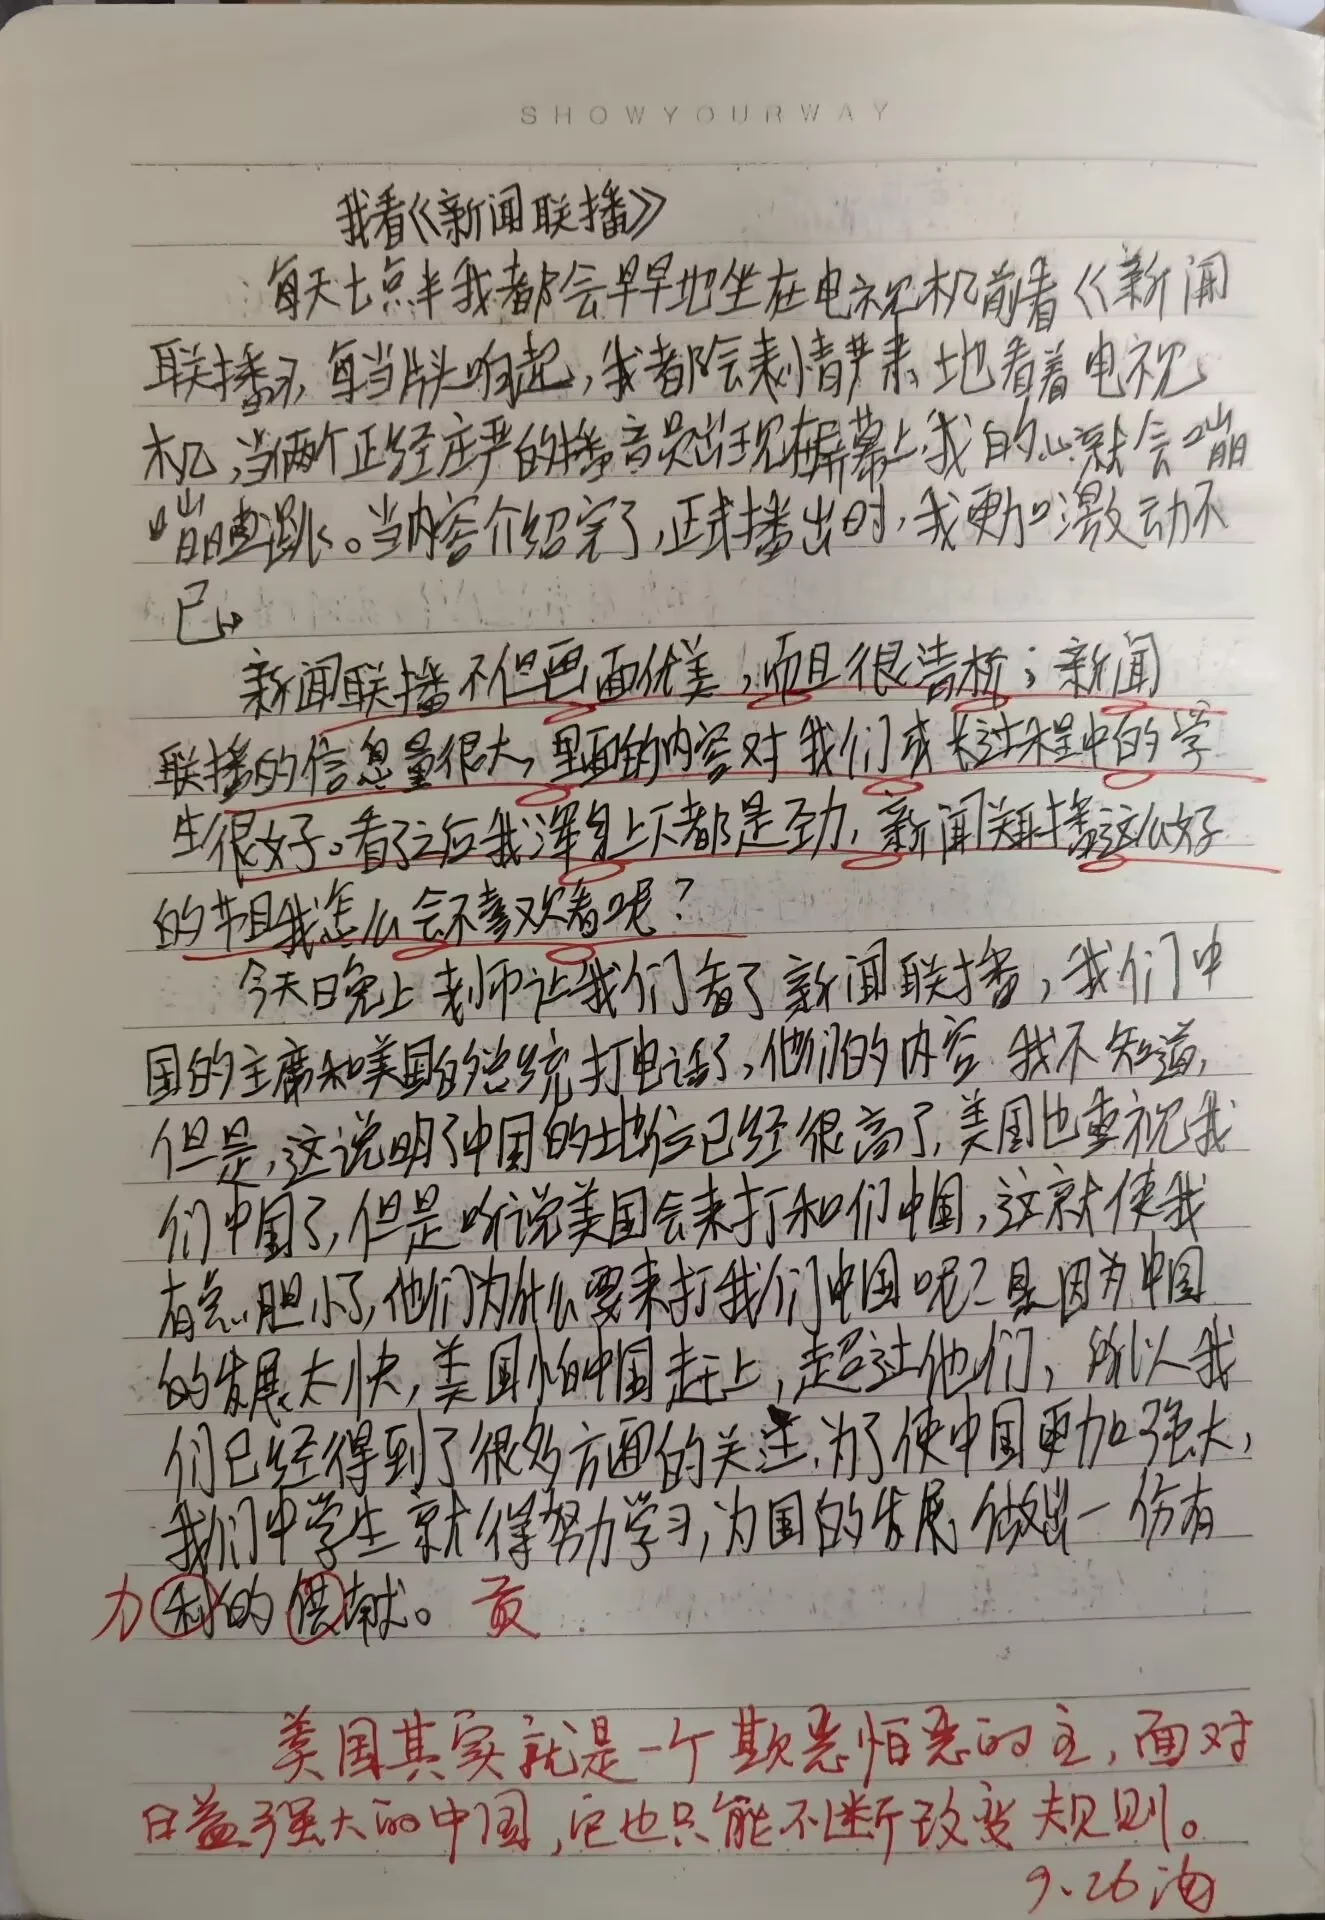 SHOWYOURWAY
我看《新闻联播》
每天七点半我都会早早地坐在电视机前看《新闻
联播》，每当片头响起，我都会表情严肃地看着电视
机，当两个正经庄严的播音员出现在屏幕上，我的心就会嘣
嘣直跳。当内容介绍完了，正式播出时，我更加激动不
已。
新闻联播不但画面优美，而且很清晰；新闻
联播的信息量很大，里面的内容对我们成长过程中的学
生很好。看了之后我浑身上下都是劲，新闻联播这么好
的节目我怎么会不喜欢看呢？
今天晚上老师让我们看了新闻联播，我们中
国的主席和美国的总统打电话了，他们的内容我不知道，
但是，这说明了中国的地位已经很高了，美国也重视我
们中国了，但是听说美国会来打和们中国，这就使我
有点胆小了，他们为什么要来打我们中国呢？是因为中国
的发展太快，美国怕中国赶上，超过他们，所以我
们已经得到了很多方面的关注，为了使中国更加强大，
我们中学生就得努力学习，为国的发展做出一份有
力 利的供献。 贡
美国其实就是一个欺恶怕恶的主，面对
日益强大的中国，它也只能不断改变规则。
9.26